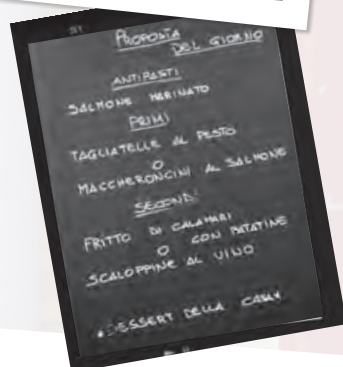 PROPOSTA
DEL GIORNO
ANTIPASTI
SALMONE MARINATO
PRIMI
TAGLIATELLE AL PESTO
O
MACCHERONCINI AL SALMONE
SECONDI
FRITTO DI CALAMARI
O CON PATATINE
SCALOPPINE AL VINO
DESSERT DELLA CASA